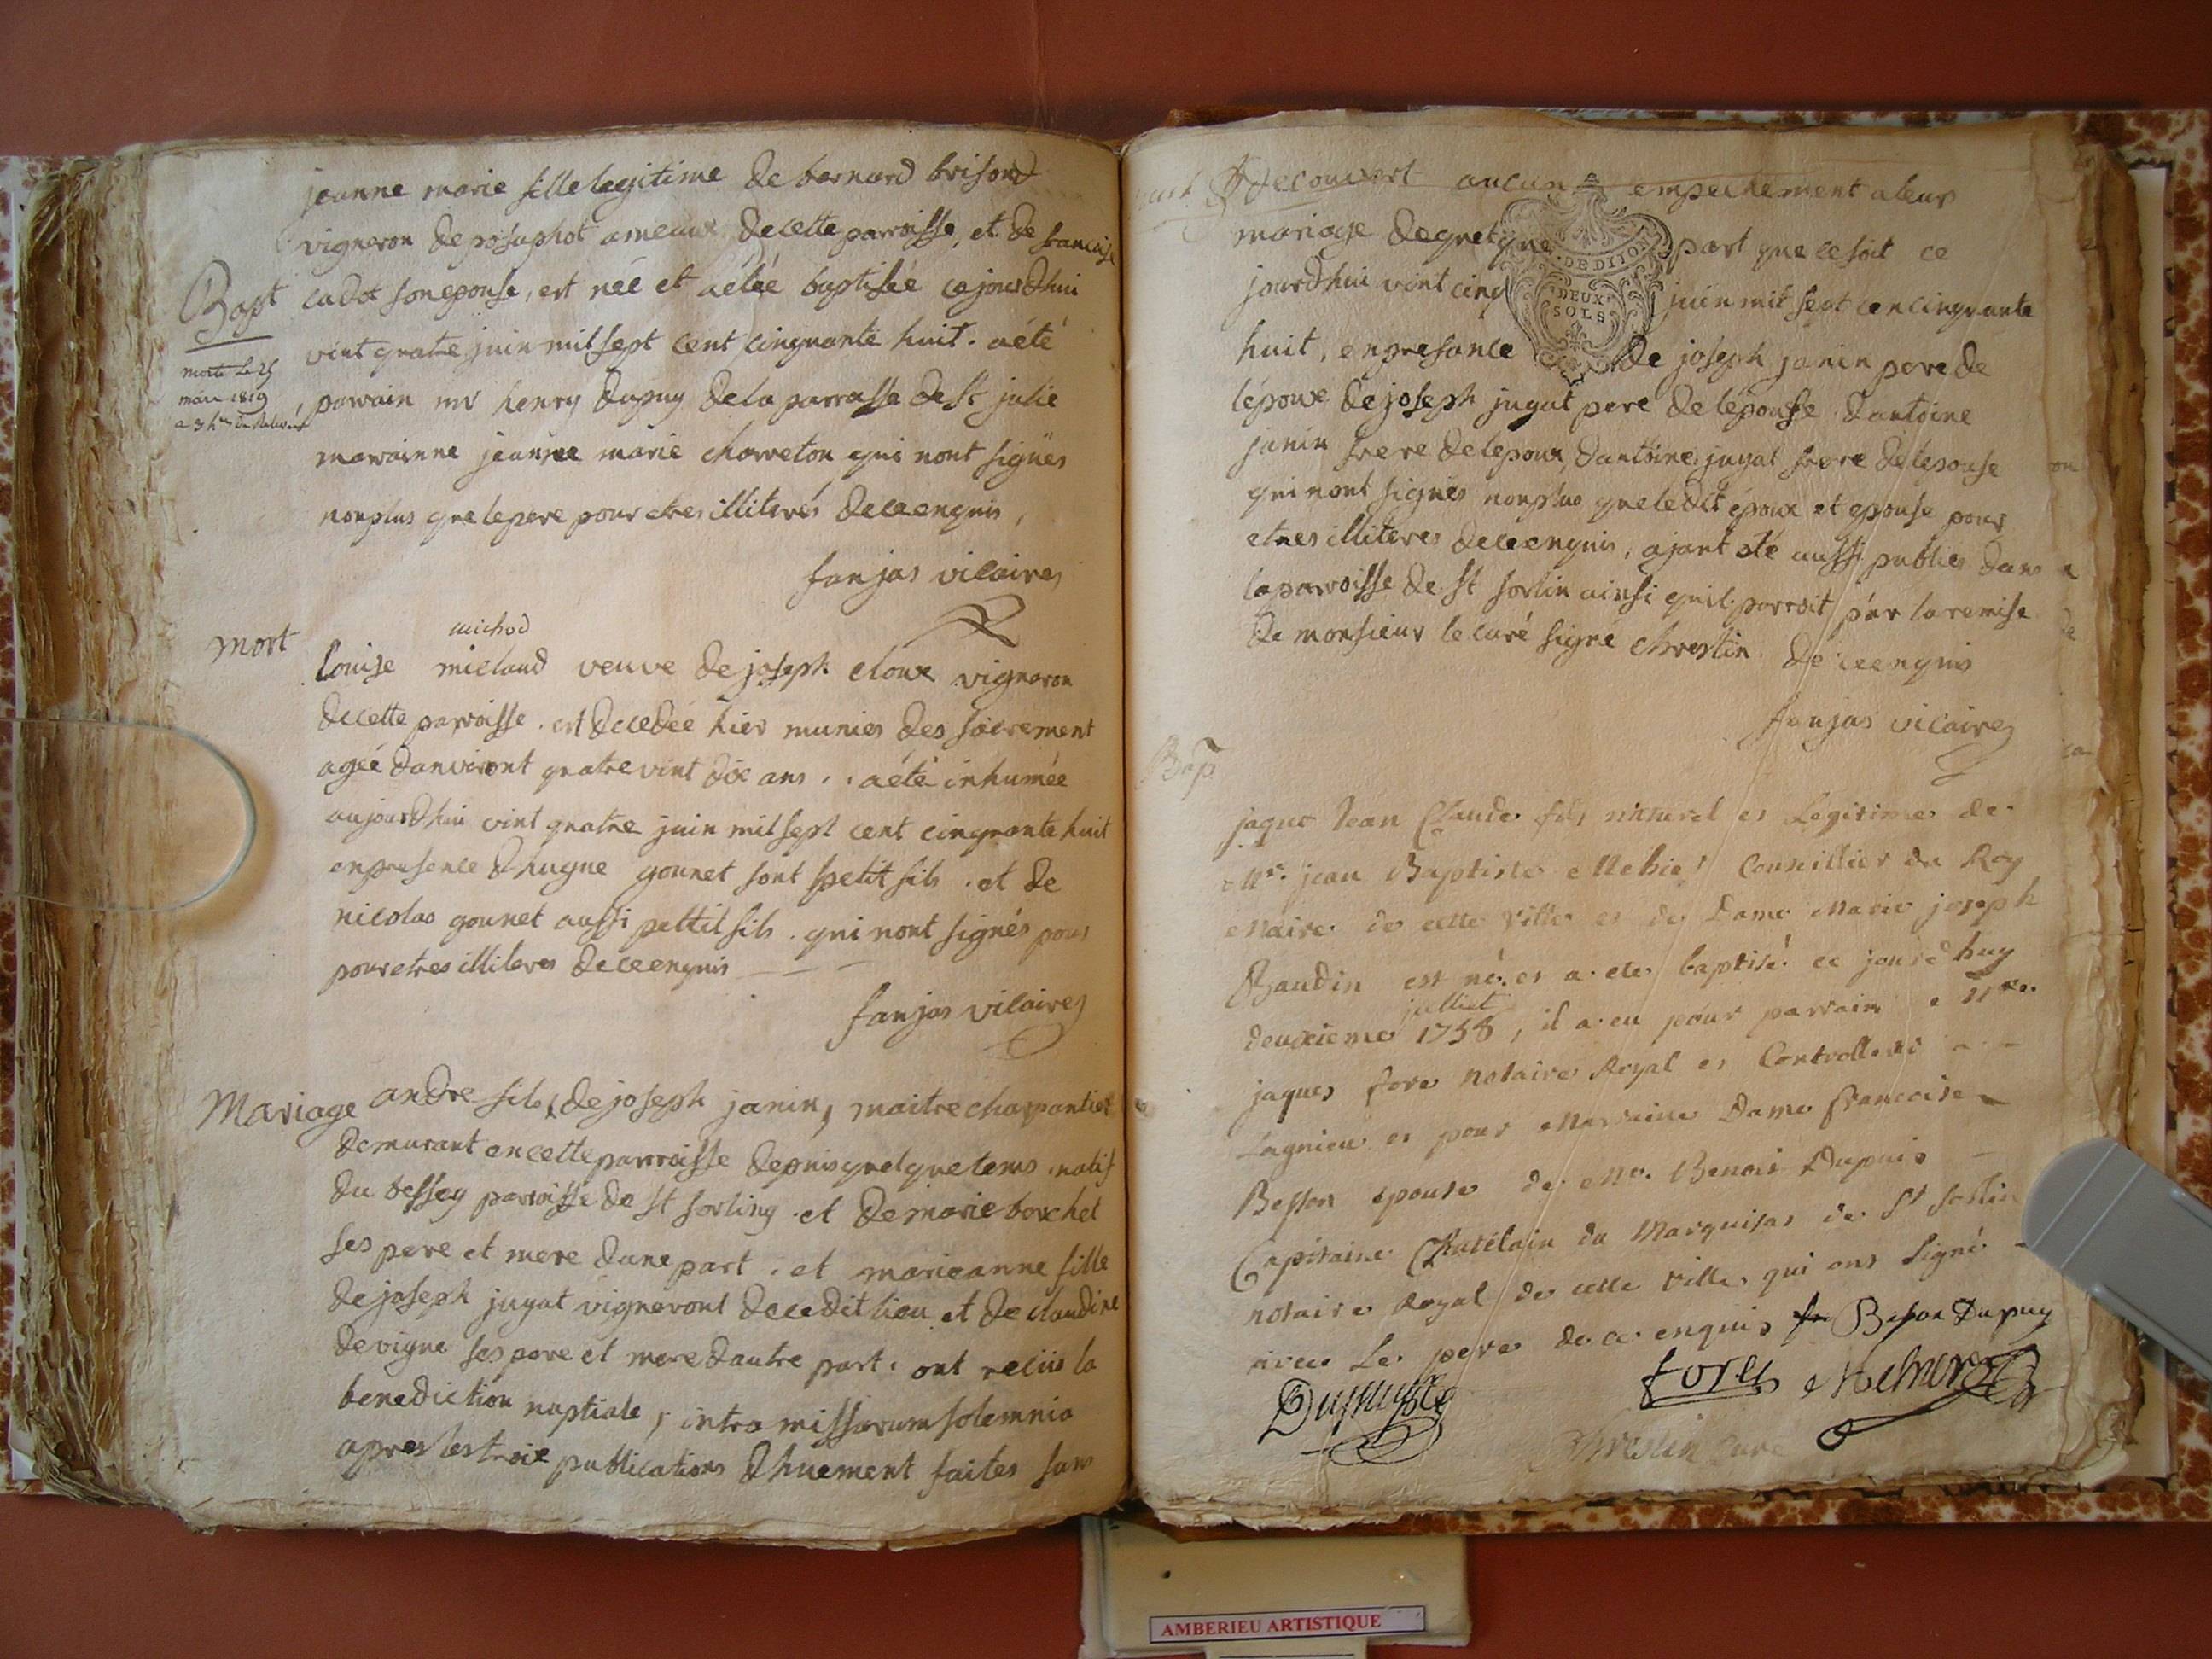 jeanne marie fille legitime de bernard brisond
vigneron de posaphot ameaux de cette parroisse, et de francoise
cadot son epouse, est née et aétée baptisée cejourdhui
Bapt
vint quatre juin mil sept cent cinquante huit. aété
morte Le 25
mari 1819
a 3 h
parrain mr henry dupuy de la parroisse de st julie
marainne jeanne marie charreton qui nont signés
nonplus que le pere pour etres illiterés de ce enquis,
fanjas vicaire
mort
michod
louise miclaud veuve de joseph cloux vigneron
de cette parroisse. est decedée hier munies des sacrement
agée danviront quatre vint dix ans.. aété inhumée
aujourdhui vint quatre juin mil sept cent cinquante huit
en presence dhugue gounet sont petit fils. et de
nicolas gounet aussi pettit fils. qui nont signés pour
pour etres illiteres de ce enquis
fanjas vicaire
Mariage
andre fils de joseph janin, maitre charpantier
demurant en cette parroisse depuis quelque tems natif
du bessey parroisse de st sorling. et de marie borchet
ses pere et mere dune part. et marieanne fille
de joseph jugat vigneront de cedit lieu et de claudine
devigne ses pere et mere dautre part. ont reciu la
benediction nuptiale, intra missarum solemnia
apres les troix publications dhuement faites sans
decouvert aucun empechement a leur
mariage de quelque part que ce soit ce
jourdhui vint cinq juin mil sept cen cinquante
DE DIJON
DEUX
SOLS
huit, en presance de joseph janin pere de
lépoux de joseph jugat pere de lépousse dantoine
janin frere de lepoux, dantoine jugat frere de lepouse
qui nont signés nonplus que ledit époux et epouse pour
etres illiteres de ce enquis, ajant été aussi publies dans
la parroisse de st sorlin ainsi quil parroit par la remise
de monsieur le curé signé chrestin de ce enquis
fanjas vicaire
Bap
jaque Jean Claude fils naturel et Legitime de
Mr. jean Baptiste Conseillier du Roy
Maire de cette Ville et de Dame Marie joseph
Baudin est né et a ete baptisé ce jourdhuy
julliet
deuxieme 1758, il a eu pour parrain Mre.
jaques fore notaire Royal et Controlleur a
Lagnieu et pour Marraine Dame francoise
Besson epouse de Me. Benoit Dupuis
Capitaine Chatelain du Marquisat de St sorlin
notaire Royal de cette Ville qui ont signé
avec Le pere de ce enquis Beson Dupuy
Dupuys fore
Chrestin Curé
AMBERIEU ARTISTIQUE